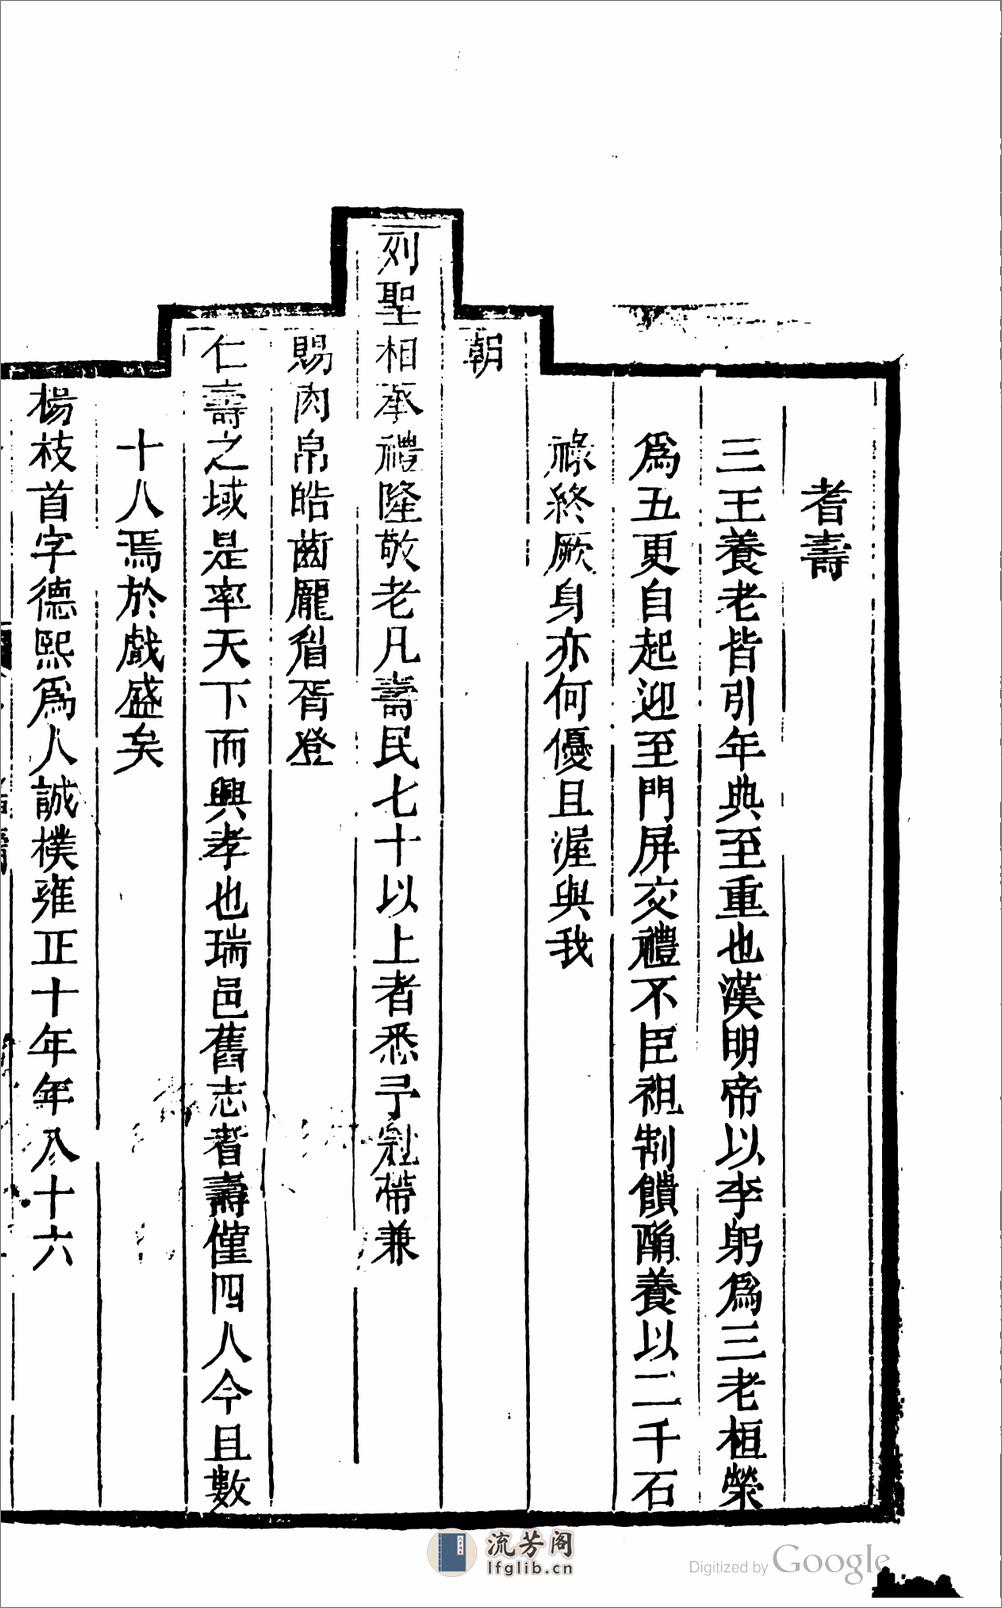 耆壽
三王養老皆引年典至重也漢明帝以李躬爲三老桓榮
爲五更自起迎至門屏交禮不臣祖割饋酳養以二千石
祿終厥身亦何優且渥與我
朝
列聖相承禮隆敬老凡壽民七十以上者悉予冠帶兼
賜肉帛皓齒龎眉胥登
仁壽之域是率天下而興孝也瑞邑舊志耆壽僅四人今且數
十八焉於戲盛矣
楊枝首字德熙爲人誠樸雍正十年年八十六
流芳阁
lfglib.cn
Digitized by Google